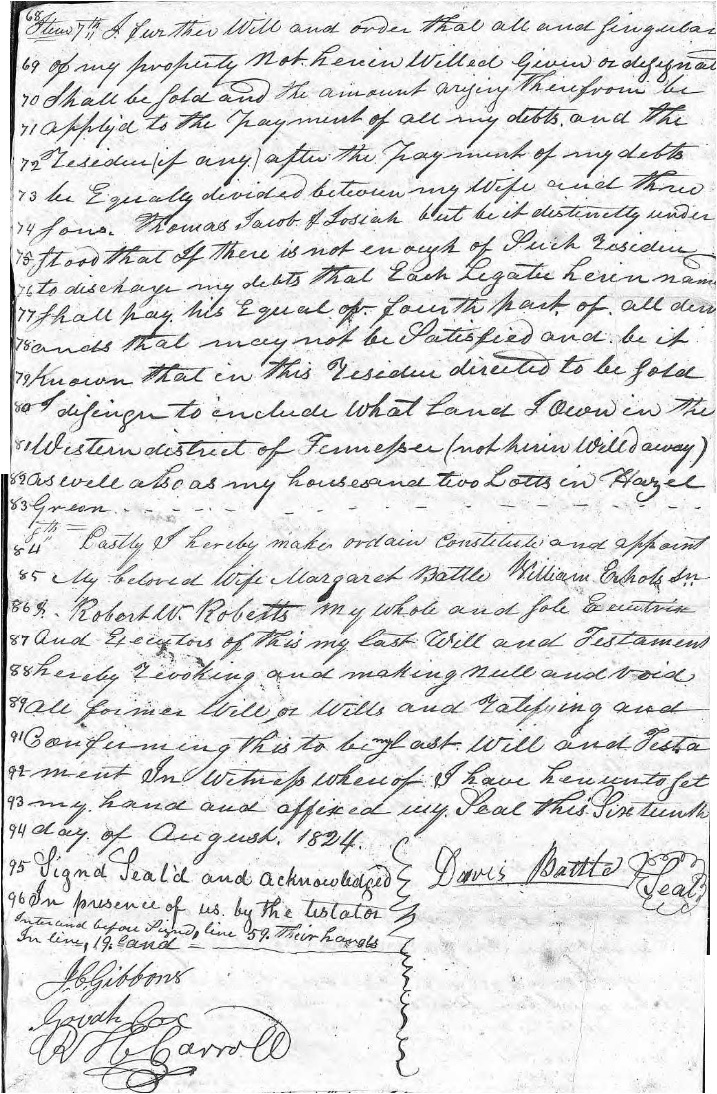 68 Item 7th I further Will and order that all and singular
69 of my property Not herein Willed Given or designat
70 Shall be Sold and the amount arsing therefrom be
71 applyd to the Payment of all my debts. and the
72 Residue (if any) after the Payment of my debts
73 be Equally divided between my Wife and three
74 Sons. Thomas Jacob & Josiah but be it distinctly under
75 stood that If there is not enough of Such residue
76 to discharge my debts that Each Legatee herein name
77 Shall pay his Equal or fourth part of all dem
78 ands that may not be Satisfied and be it
79 Known that in this Residue directed to be Sold
80 I design to include What Land I Own in the
81 Western district of Tennessee (not herin Willd away)
82 as well also as my houses and two Lotts in Hazel
83 Green
8th
84 Lastly I hereby make ordain Constitute and appoint
85 My beloved Wife Margaret Battle William Echols Sn
86 & Robert W. Roberts my whole and Sole Executrix
87 And Executors of this my last Will and Testament
88 hereby revoking and making null and void
89 all former Will or Wills and Ratifying and
91 Confirming this to be my Last Will and Testa
92 ment In Witness whereof I have hereunto Set
93 my hand and affixed my Seal this Sixteenth
94 day of August. 1824.
95 Signd Seal'd and acknowledged
96 In presence of us. by the testator
Interlind before Signd, line 59. their hands
In line, 19. land
Davis Battle Seal
J C Gibbons
Cox
Carroll